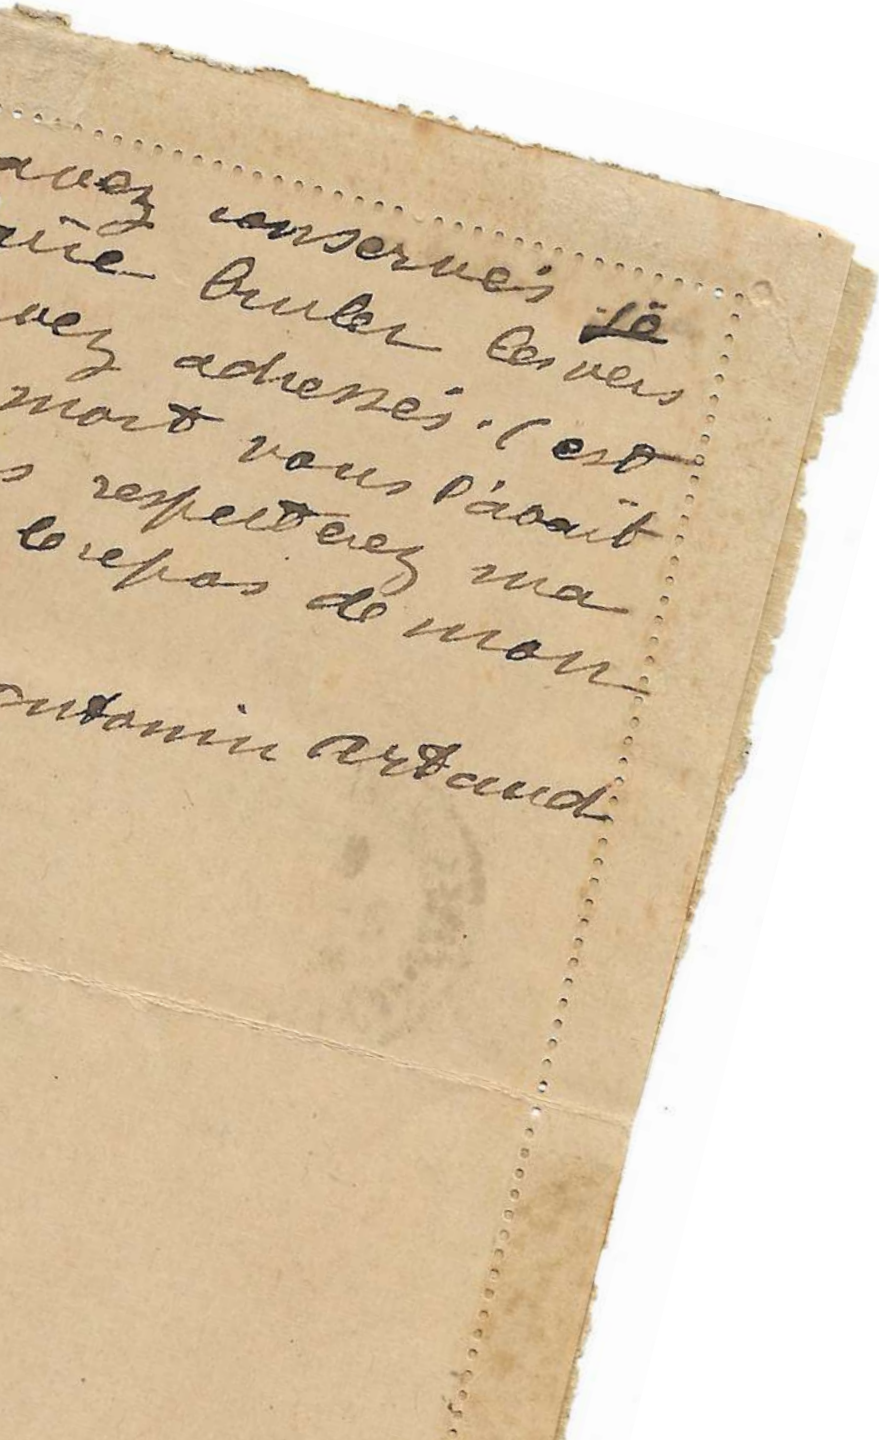 avez conservés Je
bruler les vers
vez adressés. C'est
mort vous l'avait
s respecterez ma
le repos de mon
antonin artaud